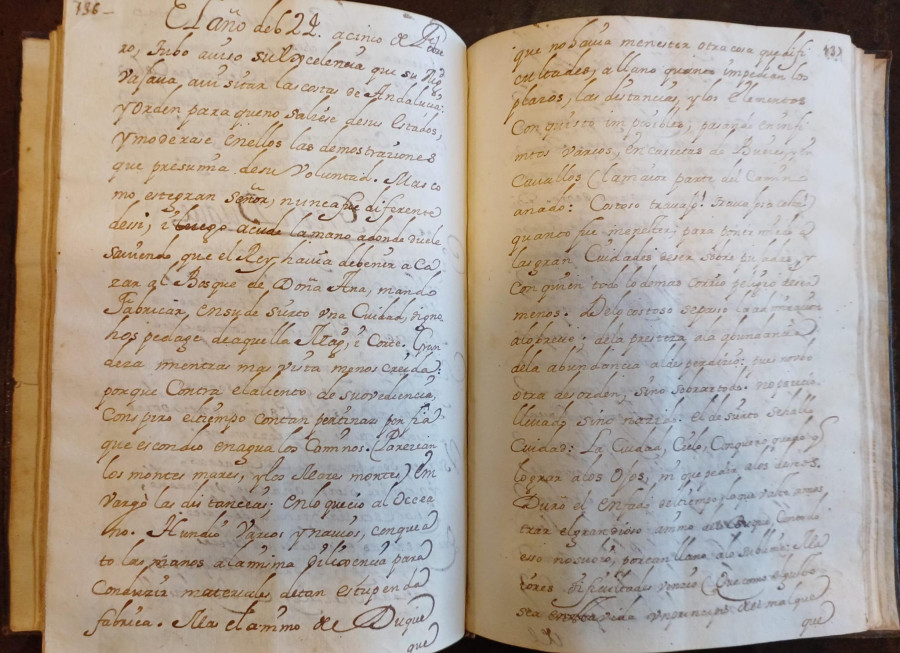 136
El año de 622. a cinco de
ro, tubo aviso su Excelencia que su Mag
vajava, avisitar las costas de Andaluçia:
y Orden para que no saliese de sus Estados,
y moderase en ellos las demostraziones
que presumia de su Voluntad. Mas co
mo este gran Señor, nunca fue diferente
de ssi, i luego acude la mano adonde duele
saviendo que el Rey havia de benir a Ca
zar al Bosque de Doña Ana, mando
Fabricar, en su desierto vna Ciudad, digno
hospedage de aquella Mag, i Corte. Gran
deza mientras mas vista menos creida:
porque Contra el aliento de su ovediencia,
Conspiro el tiempo con tan pertinas porfia
que escondio en agua los Caminos. (Parezian
los montes mares, y los Mares montes) Em
vargò las distanceas; enloquecio al Occea
no. Hundio Varcos y navios, con que a
to las manos a la misma diligencia para
Conduzir materiales, de tan estupenda
fabrica. Mas el animo de el Duque
que
137
que no havia menester otra cosa que difi
cultades, allano quanto impedian los
plazos, las distancias, y los Elementos
Con questo imposibles; pasando en infi
nitos Varcos, en Carretas de Bueyes, y en
Cavallos (la maior parte del Camino
anado: Costoso travajo!
quanto fue menester, para
las gran Ciudades
Con quien todo lo demas corrio peligro de ser
menos. De lo costoso se paso la admiracion
a lo breve: de la presteza a la abundanzia
de la abundancia al desperdicio; pues no vbo
otra desorden, sino sobrar todo. no parecia
llevado sino nazido. El desierto se hallo
Ciudad: La Ciudad, Cielo,
lograr a los Ojos, ni que pedir a los deseos.
Durò el enfado del tiempo lo que vasto amos
trar el grandioso animo de el Duque, Con todo
eso no lucio, porque en llano a lo sublime. Ma
iores dificultades vencio (Que como el gusto
sea
que